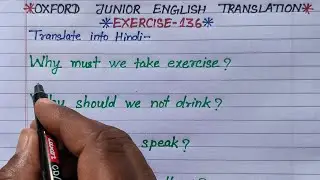 *OXFORD JUNIOR ENGLISH TRANSLATION*
*EXERCISE-136*
Translate into Hindi:-
Why must we take exercise?
should we not drink?
speak?